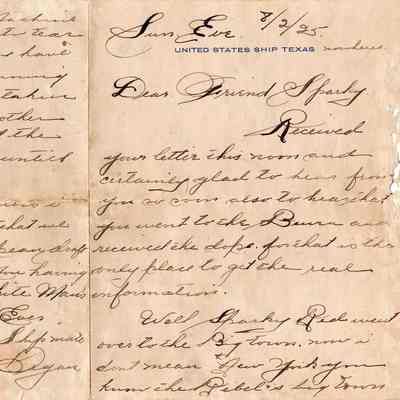 Sun, Eve. 8/2/25.
UNITED STATES SHIP TEXAS
Dear Friend Sparky
Received
your letter this noon and
certainly glad to hear from
you so soon also to hear that
you went to the Bureau and
received the dope. for that is the
only place to get the real
information.
Well Sparky Red went
over to the Big town, now i
dont mean New York you
know the Rebel's big town
to tear
have
taken
other
the
until
is
that we
draft
you having
White Man's
Eves.
Shipmate
Regan